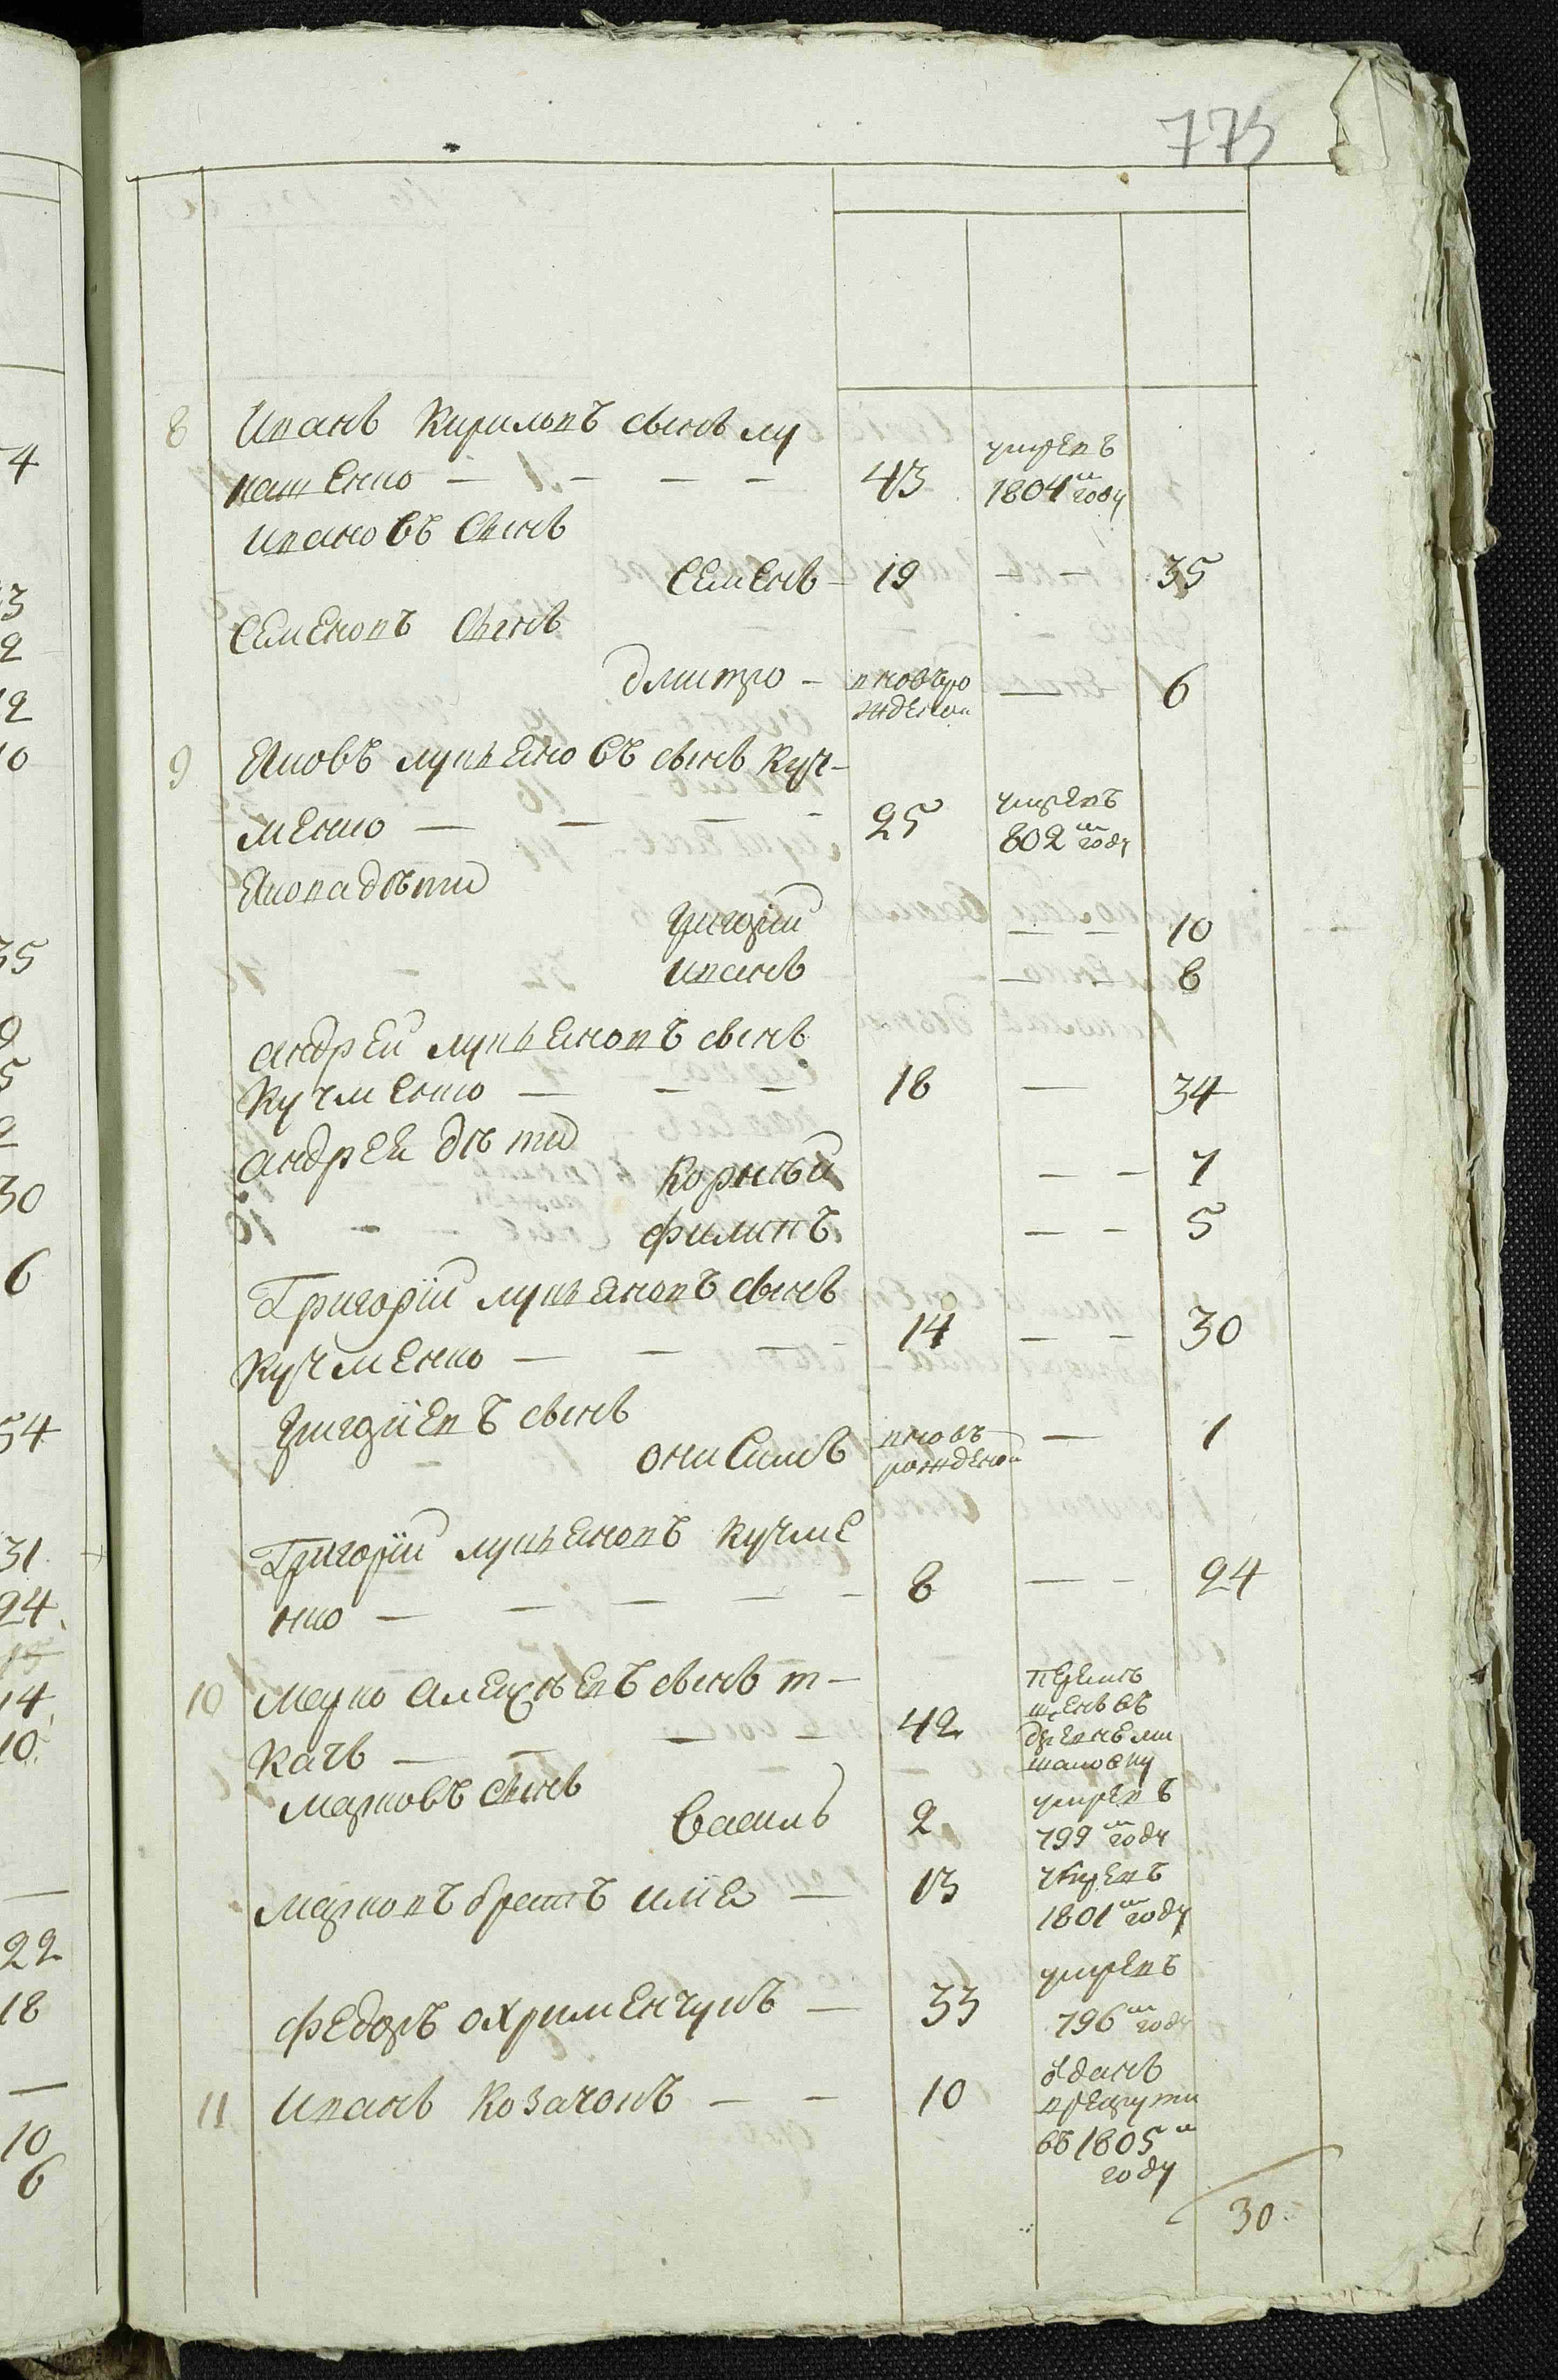 773
8 Иванъ Кириловъ сынъ лу
кашенко — — — — 43 умревъ 1804м году
Ивановъ сынъ
Семенъ — 19 — — 35
Семеновъ сынъ
Дмитро — вновьро жденой — 6
9 Яковъ лукьяновъ сынъ Куч-
менко — — — 25 умревъ 802м году
Якова дѣти
Григорий — — 10
Иванъ — — 8
Андрей лукьяновъ сынъ
Кучменко — — — 18 — 34
Андрея дѣти
Корнѣй — — 7
Филипъ — — 5
Григорій лукьяновъ сынъ
Кучменко — — — 14 — — 30
Григоріевъ сынъ
Онисимъ вновь рожденой — 1
Григорій лукьяновъ Кучме
нко — — — — — 8 — — 24
10 Марко Алексѣевъ сынъ т-
качъ — — — — 42 перемѣ щенъ въ
Марковъ сынъ
Василь 2 умревъ 799м году
Марковъ братъ илія — 13 умревъ 1801м году
Федоръ Охрименчукъ — 33 умревъ 796м году
11 Иванъ Козачокъ — — 10 ѡданъ врекруты въ 1805м году
30